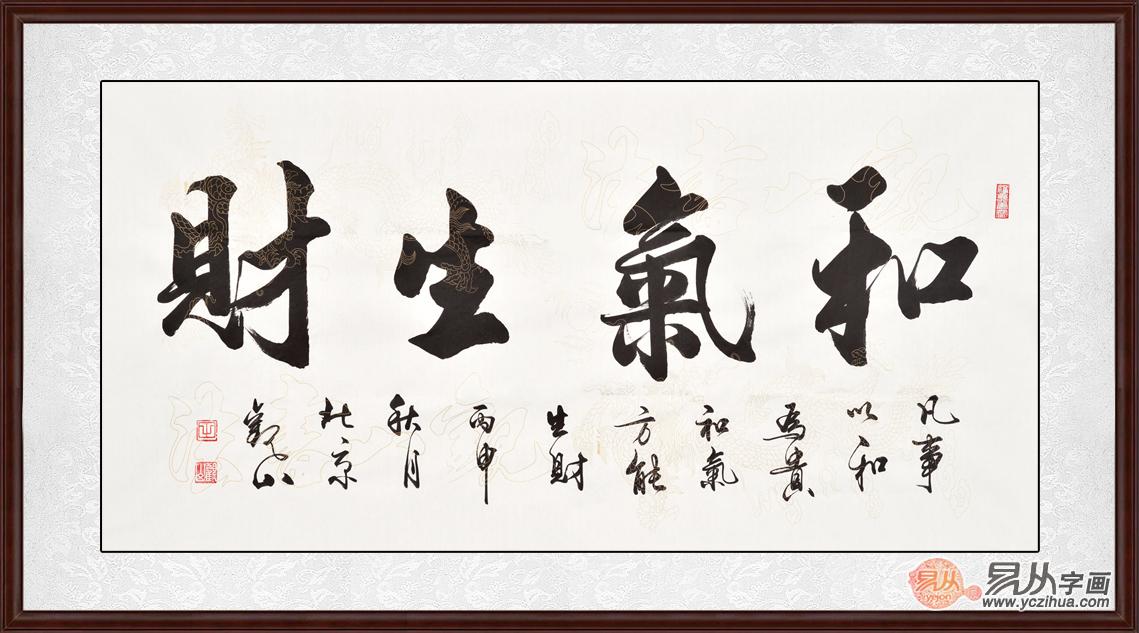 和氣生財
凡事
以和
為貴
和氣
方能
生財
丙申
秋月
北京
觀山
易从
yipion
易从字画
www.yczihua.com